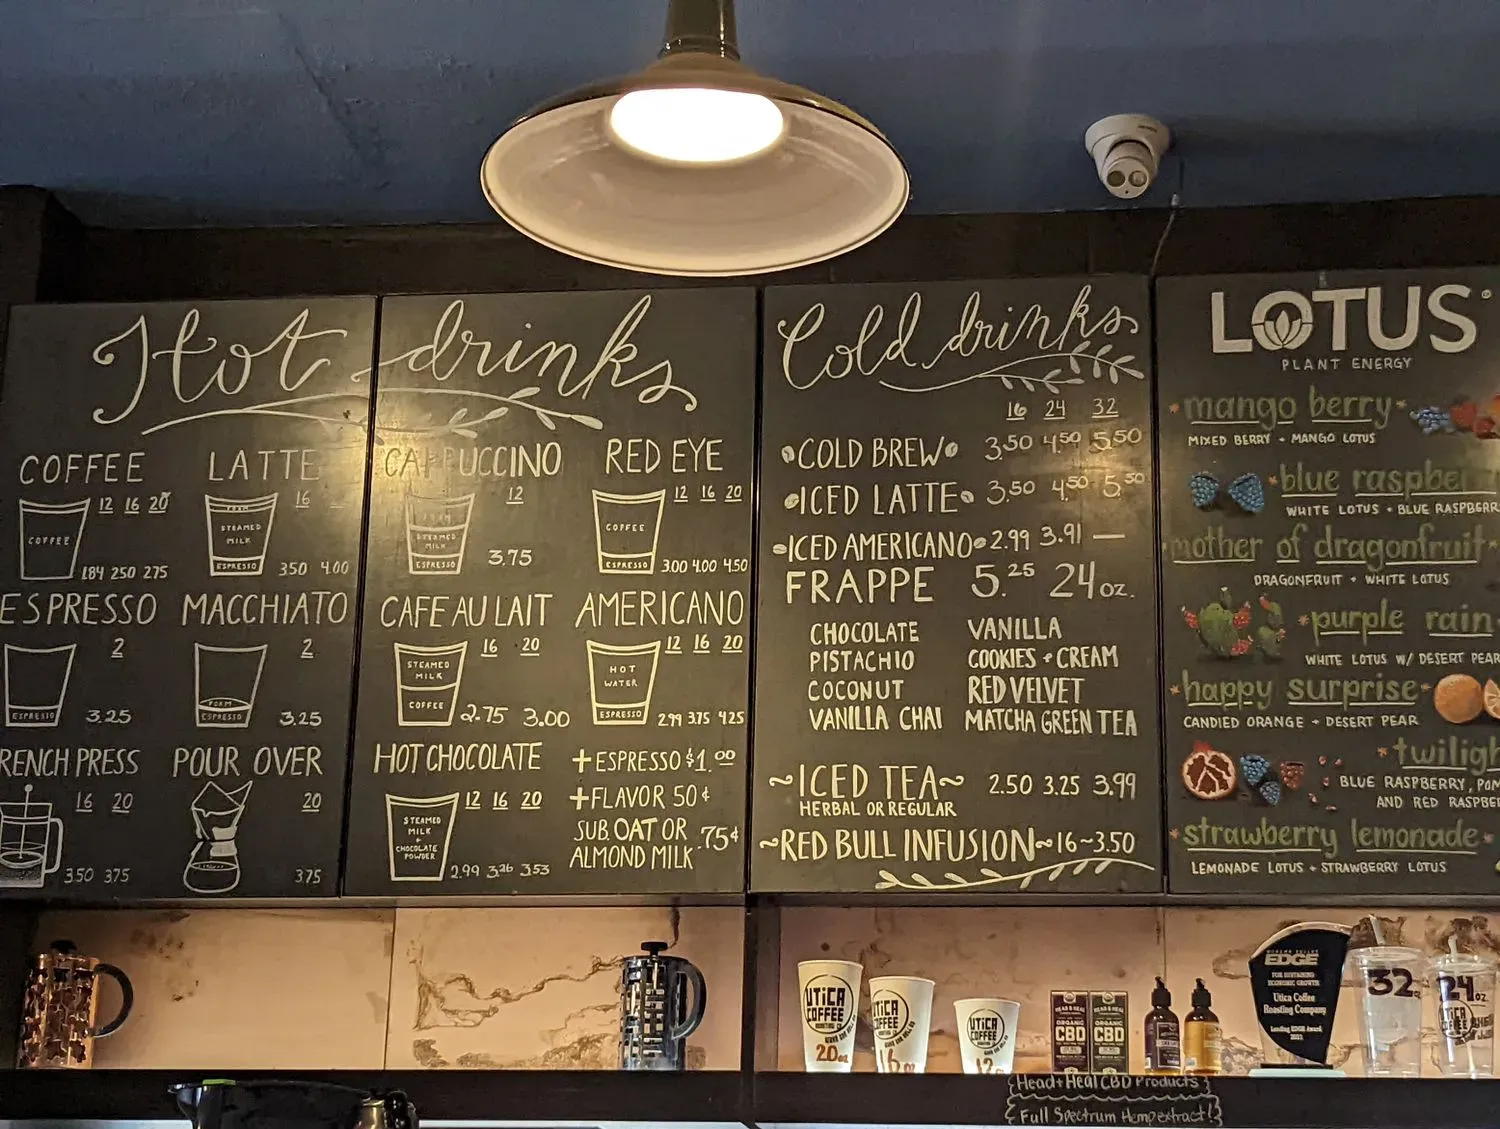 Hot drinks
COFFEE
12 16 20
COFFEE
1.84 2.50 2.75
LATTE
16
FOAM
STEAMED
MILK
ESPRESSO
3.50 4.00
CAPPUCCINO
12
FOAM
STEAMED
MILK
ESPRESSO
3.75
RED EYE
12 16 20
COFFEE
ESPRESSO
3.00 4.00 4.50
ESPRESSO
2
ESPRESSO
3.25
MACCHIATO
2
FOAM
ESPRESSO
3.25
CAFE AU LAIT
16 20
STEAMED
MILK
COFFEE
2.75 3.00
AMERICANO
12 16 20
HOT
WATER
ESPRESSO
2.99 3.75 4.25
RENCH PRESS
16 20
3.50 3.75
POUR OVER
20
3.75
HOT CHOCOLATE
12 16 20
STEAMED
MILK
+
CHOCOLATE
POWDER
2.99 3.26 3.53
+ESPRESSO $1.00
+FLAVOR 50¢
SUB OAT OR
ALMOND MILK .75¢
Cold drinks
16 24 32
COLD BREW 3.50 4.50 5.50
ICED LATTE 3.50 4.50 5.50
ICED AMERICANO 2.99 3.91 —
FRAPPE 5.25 24oz.
CHOCOLATE VANILLA
PISTACHIO COOKIES + CREAM
COCONUT RED VELVET
VANILLA CHAI MATCHA GREEN TEA
~ICED TEA~ 2.50 3.25 3.99
HERBAL OR REGULAR
~RED BULL INFUSION~16~3.50
LOTUS
PLANT ENERGY
mango berry
MIXED BERRY + MANGO LOTUS
blue raspber
WHITE LOTUS + BLUE RASPBERR
mother of dragonfruit
DRAGONFRUIT + WHITE LOTUS
purple rain
WHITE LOTUS W/ DESERT PEAR
happy surprise
CANDIED ORANGE + DESERT PEAR
twiligh
BLUE RASPBERRY, POM
AND RED RASPBE
strawberry lemonade
LEMONADE LOTUS + STRAWBERRY LOTUS
UTICA
COFFEE
ROASTING CO
20oz
UTICA
COFFEE
16oz
UTICA
COFFEE
12
HEAD & HEAL
ORGANIC
CBD
HEAD & HEAL
ORGANIC
CBD
EDGE
FOR SUSTAINING
ECONOMIC GROWTH
Utica Coffee
Roasting Company
Leading EDGE Award
32
24oz
UTICA
COFFEE
Head+Heal CBD Products
Full Spectrum Hemp extract!